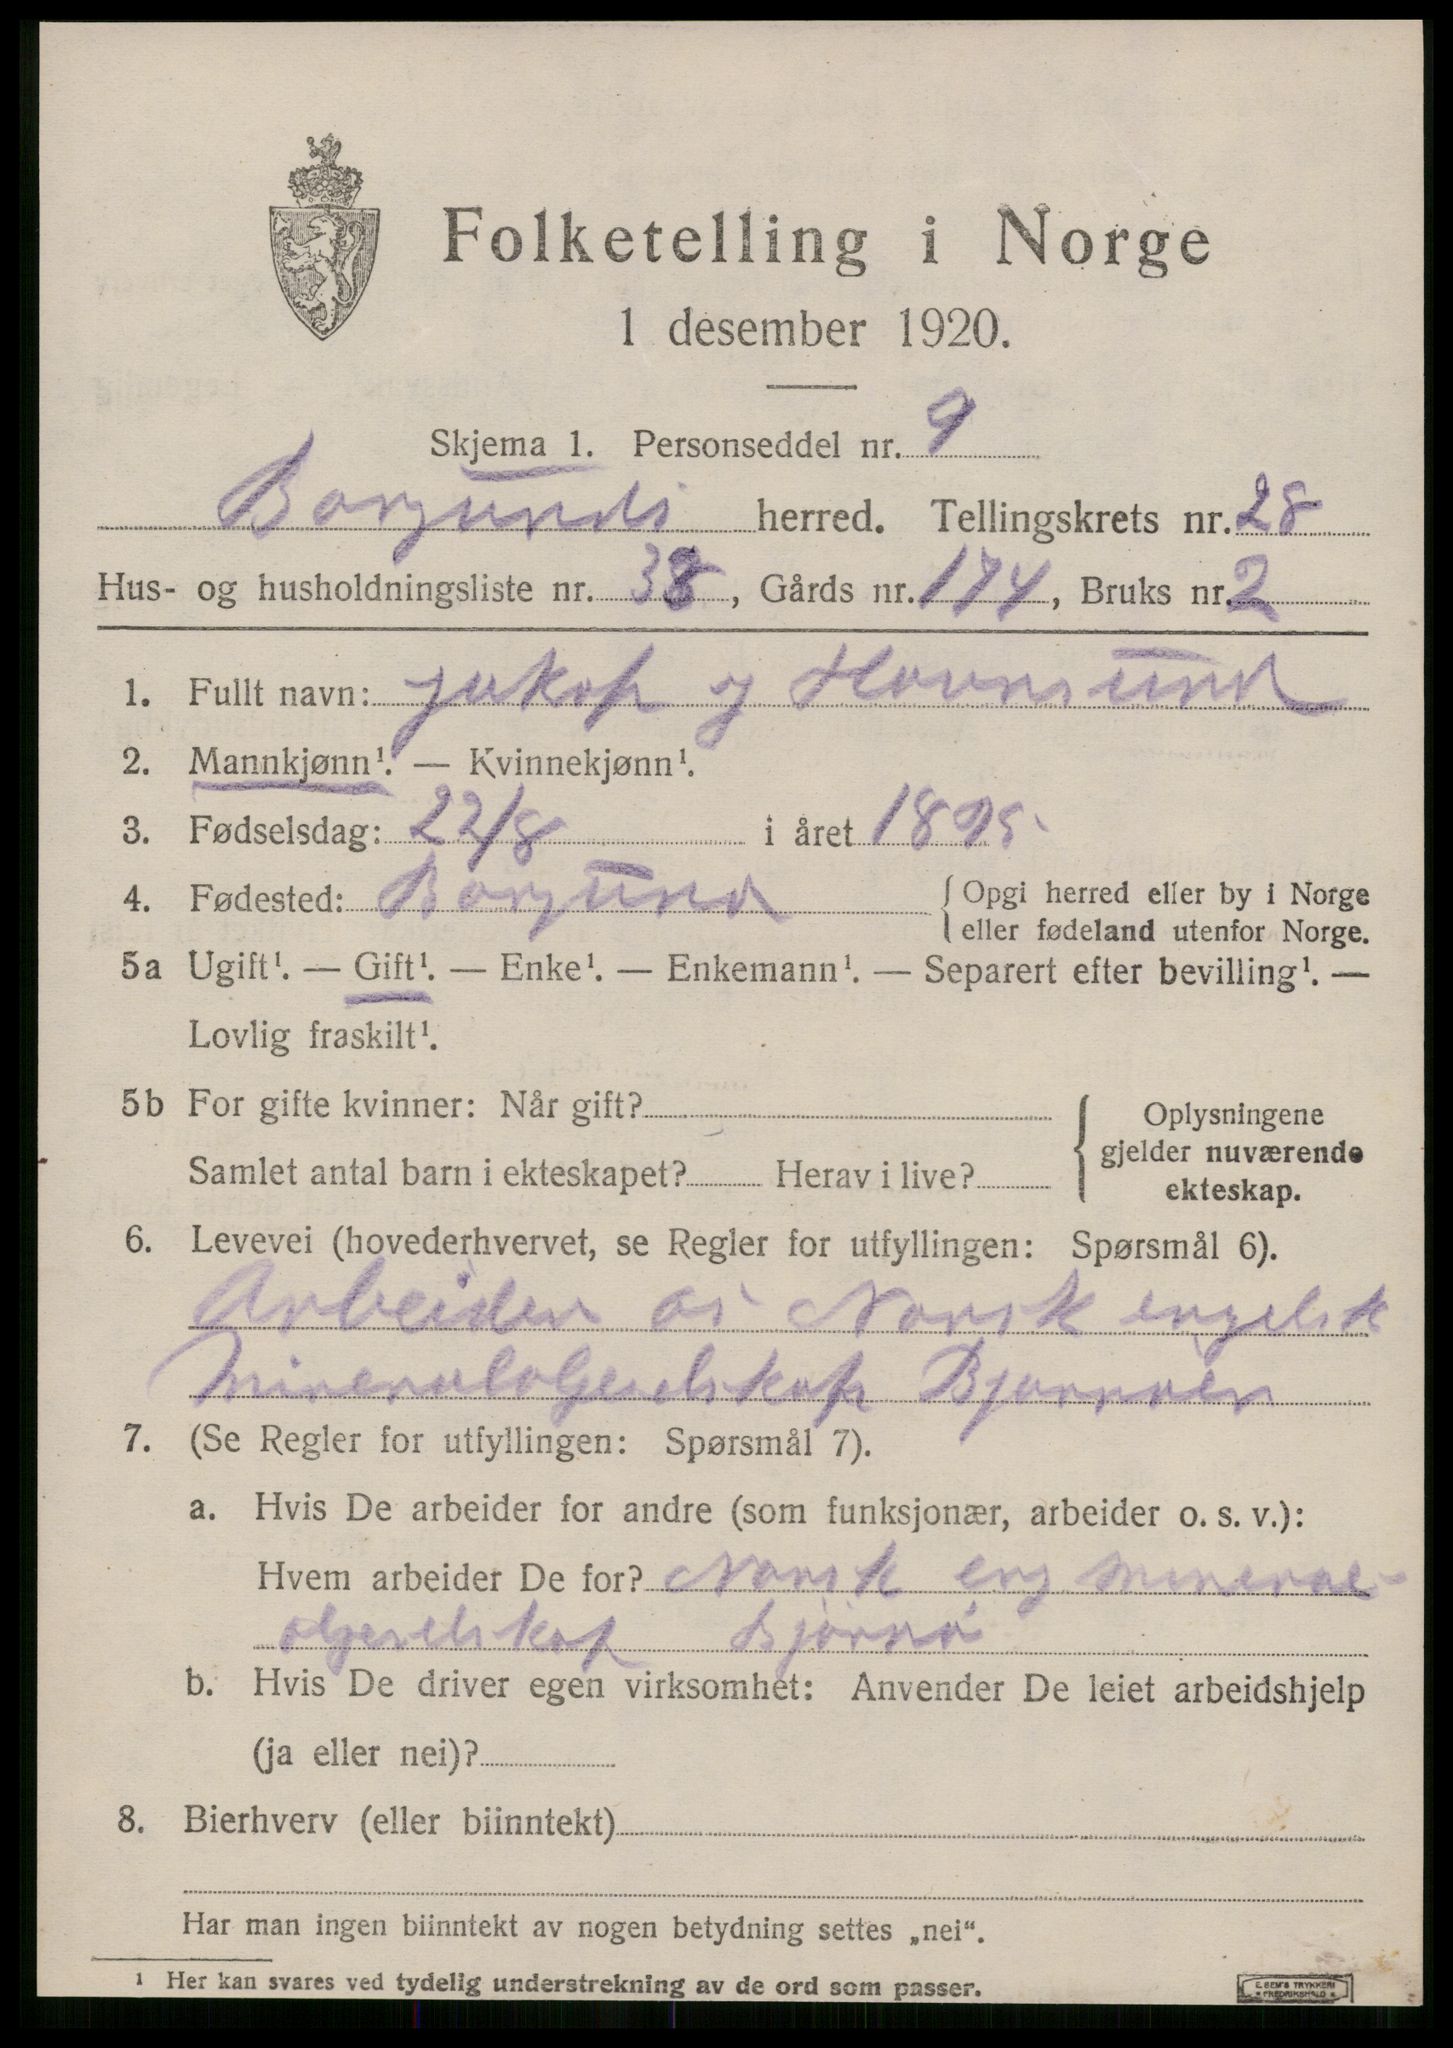 Folketelling i Norge
1 desember 1920.
Skjema 1. Personseddel nr. 9
Borgunds herred. Tellingskrets nr. 28
Hus- og husholdningsliste nr. 38, Gårds nr. 174, Bruks nr. 2
1. Fullt navn: Jakop Havnsund
2. Mannkjønn¹. — Kvinnekjønn¹.
3. Fødselsdag: 22/8 i året 1895
4. Fødested: Borgund {Opgi herred eller by i Norge
eller fødeland utenfor Norge.
5a Ugift¹. — Gift¹. — Enke¹. — Enkemann¹. — Separert efter bevilling¹. —
Lovlig fraskilt¹.
5b For gifte kvinner: Når gift? Oplysningene
gjelder nuværende
Samlet antal barn i ekteskapet? Herav i live? ekteskap.
6. Levevei (hovederhvervet, se Regler for utfyllingen: Spørsmål 6).
Arbeider Norsk engelsk
7. (Se Regler for utfyllingen: Spørsmål 7).
a. Hvis De arbeider for andre (som funksjonær, arbeider o. s. v.):
Hvem arbeider De for? Norsk eng mineral-
Bjørnø
b. Hvis De driver egen virksomhet: Anvender De leiet arbeidshjelp
(ja eller nei)?
8. Bierhverv (eller biinntekt)
Har man ingen biinntekt av nogen betydning settes „nei“.
¹ Her kan svares ved tydelig understrekning av de ord som passer.
E. SEM'S TRYKKERI
FREDRIKSHALD